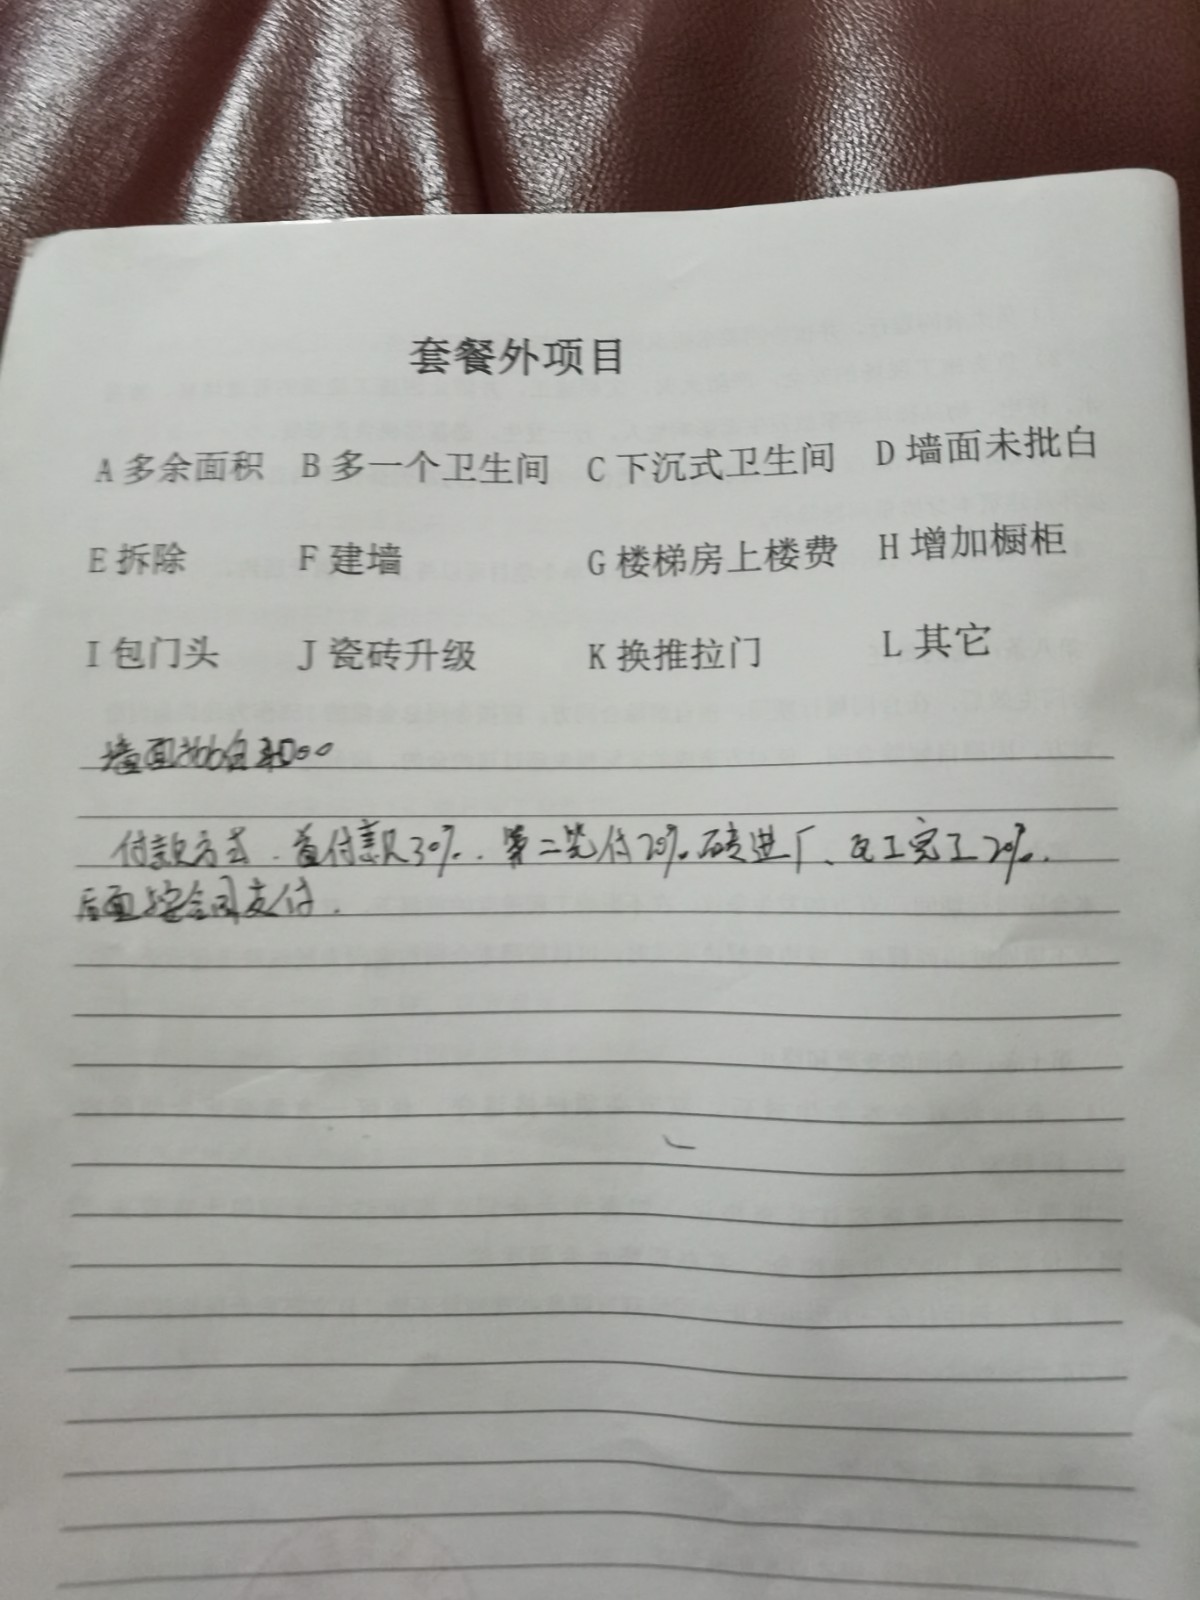 套餐外项目
A 多余面积 B 多一个卫生间 C 下沉式卫生间 D 墙面未批白
E 拆除 F 建墙 G 楼梯房上楼费 H 增加橱柜
I 包门头 J 瓷砖升级 K 换推拉门 L 其它
墙面批白
付款方式. 首付款30%. 第二笔付20%砖进厂、瓦工完工20%.
后面按合同支付.